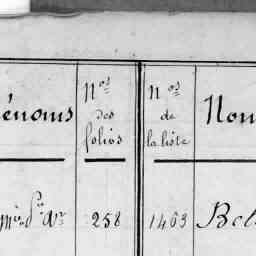 énoms
Nos
des
folios
Nos
de
la liste
Nom
258
1463
Bel